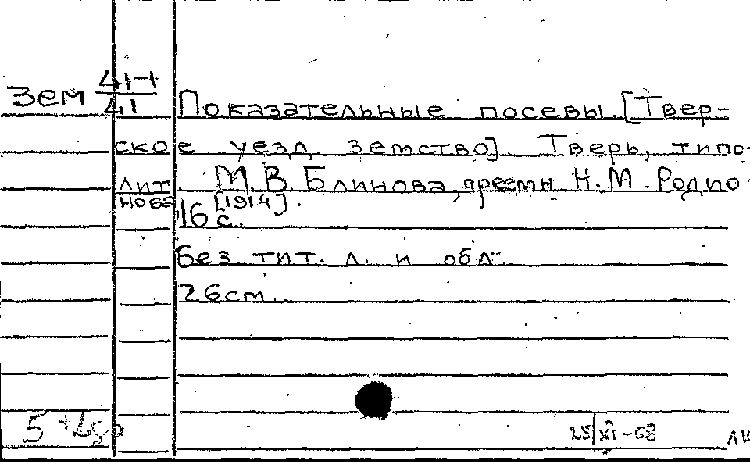 Зем 41-1/41
Показательные посевы. [Твер-
ское уезд. земство]. Тверь, типо-
лит. М. В. Блинова, преемн. Н. М. Родио-
нова [1914].
16 с.
без тит. л. и обл.
26 см.
25/XI-68